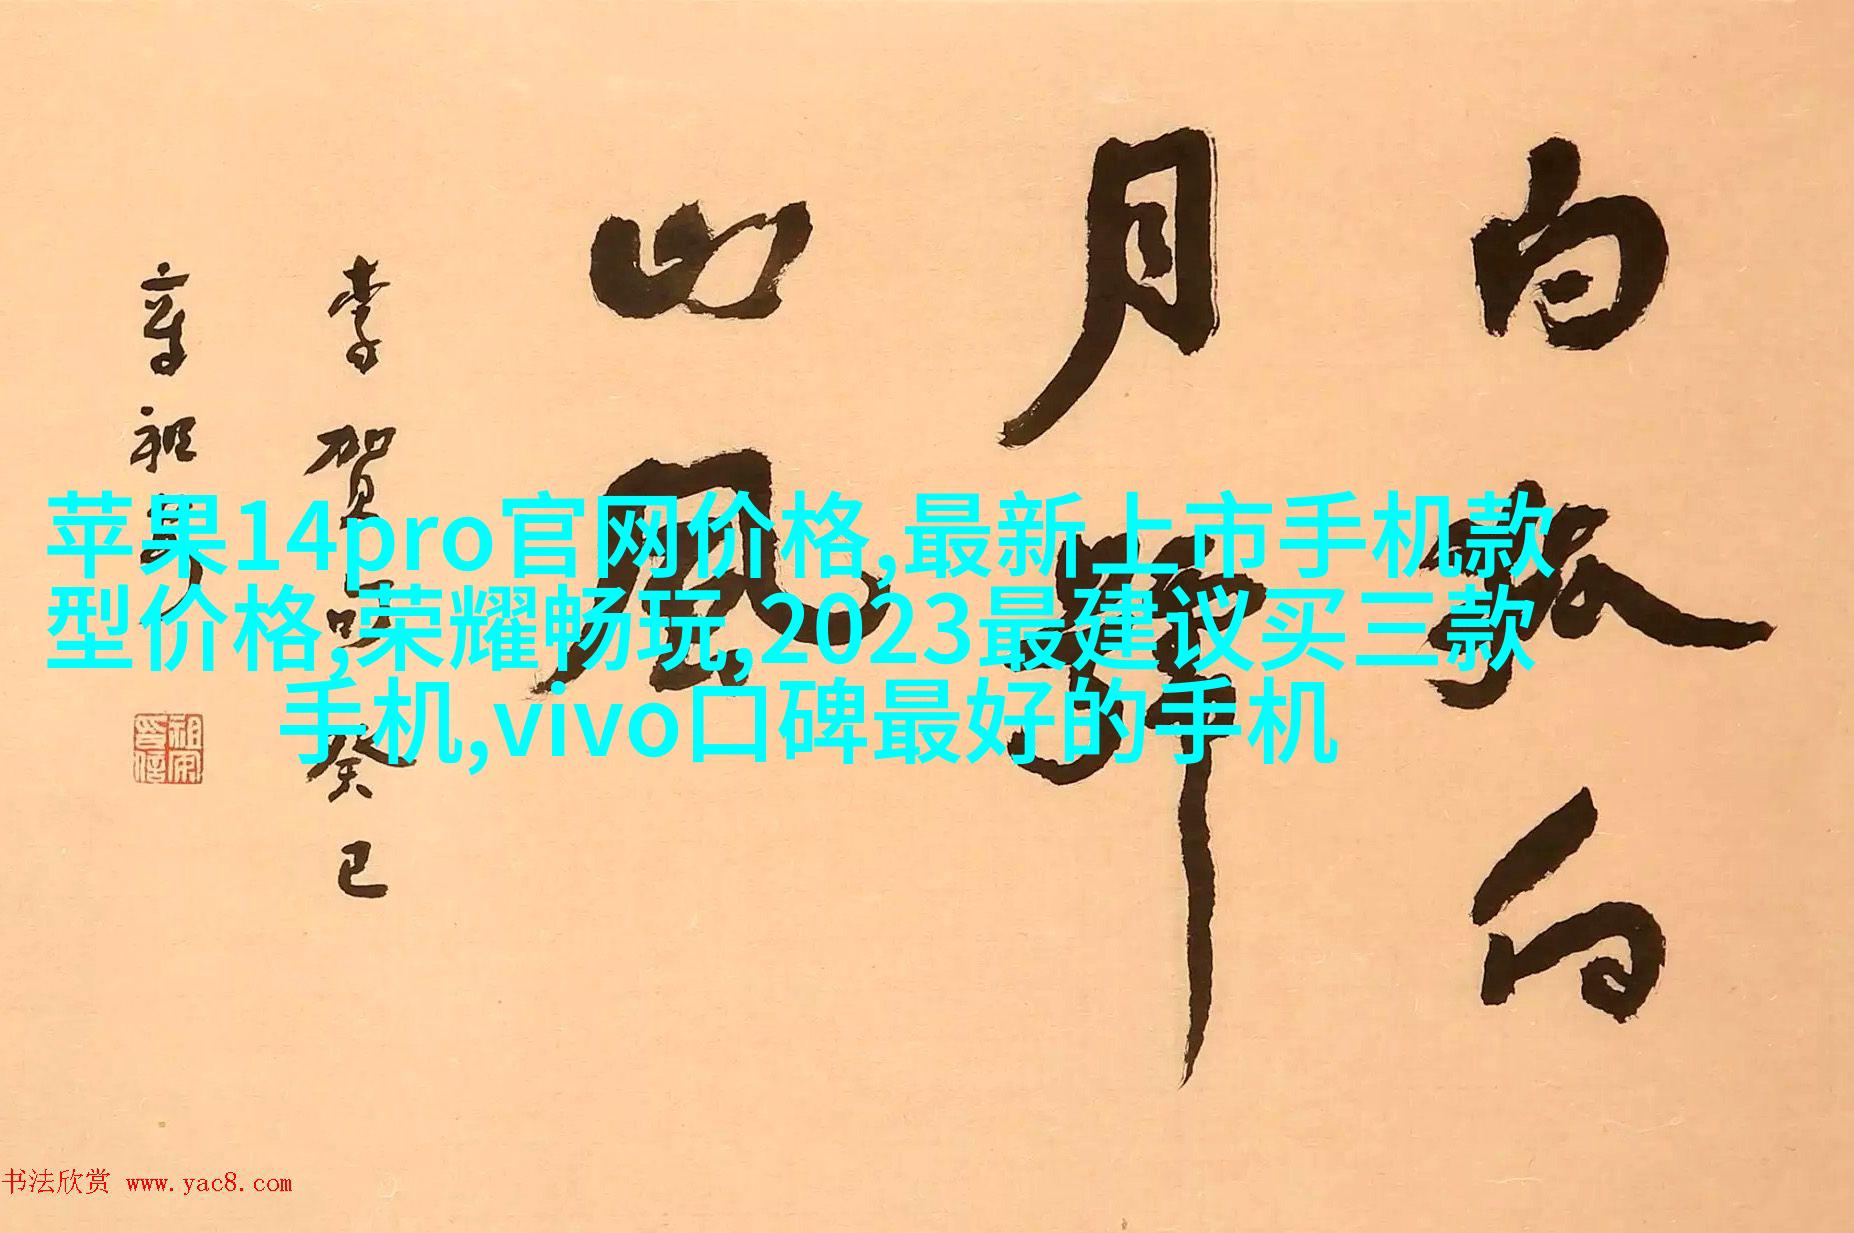 白狐向
月號
山風
李賀句 癸巳
章祖安
苹果14pro官网价格,最新上市手机款
型价格,荣耀畅玩,2023最建议买三款
手机,vivo口碑最好的手机
书法欣赏 www.yac8.com